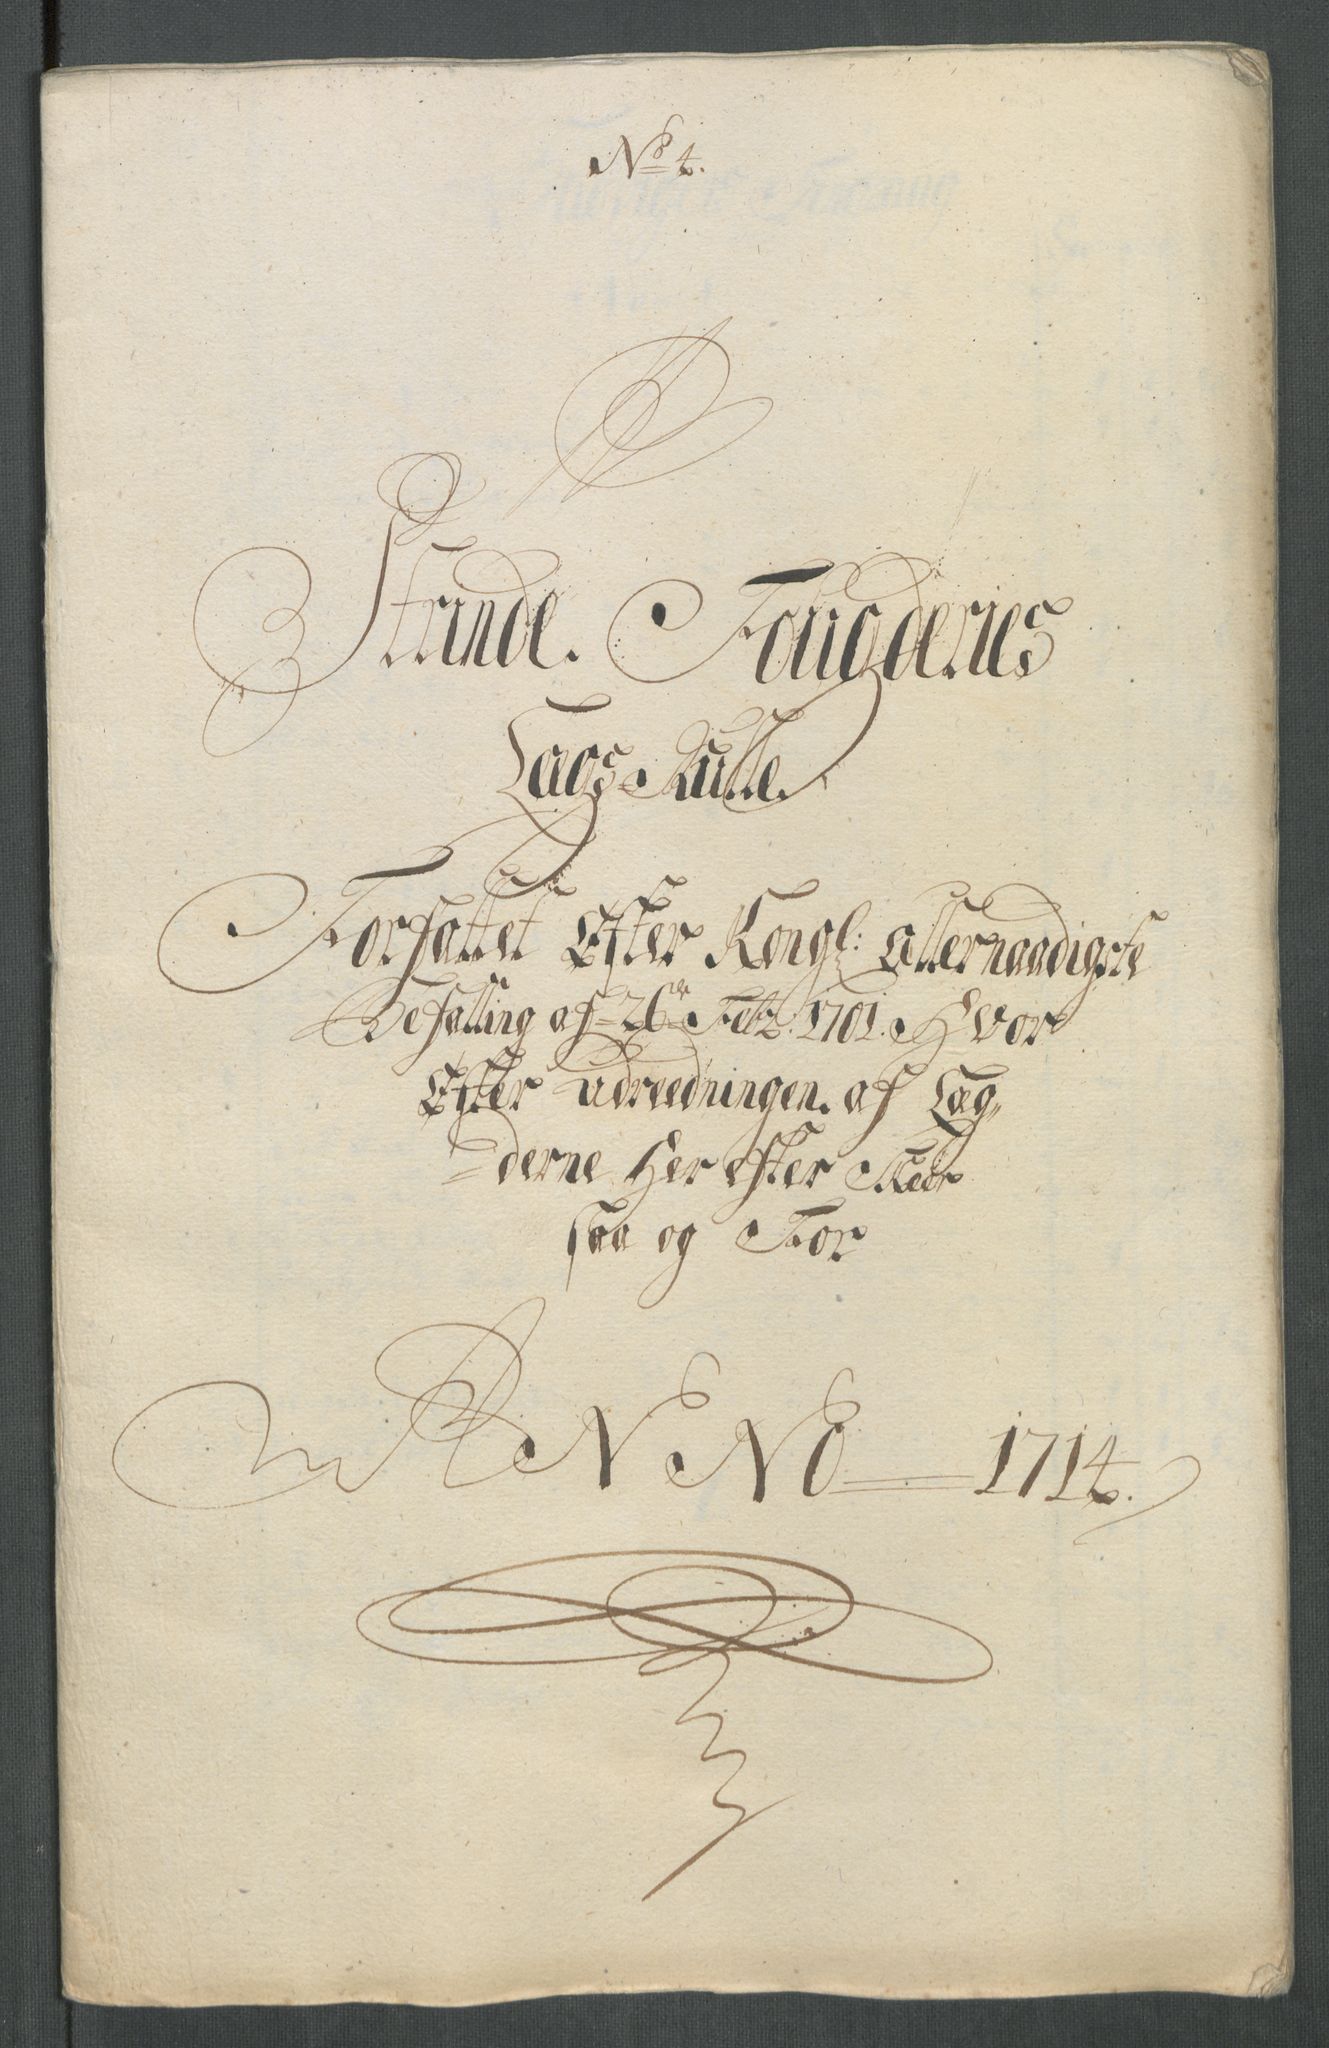 No 4.
Strinde Fougderies
Lægs Rulle
Forfattet Efter Kongl: Allernaadigste
Befalling af 26de Febr: 1701. Hvor
Efter udreedningen af Læg-
derne Her efter Skeer
saa og For
ANNO 1714.